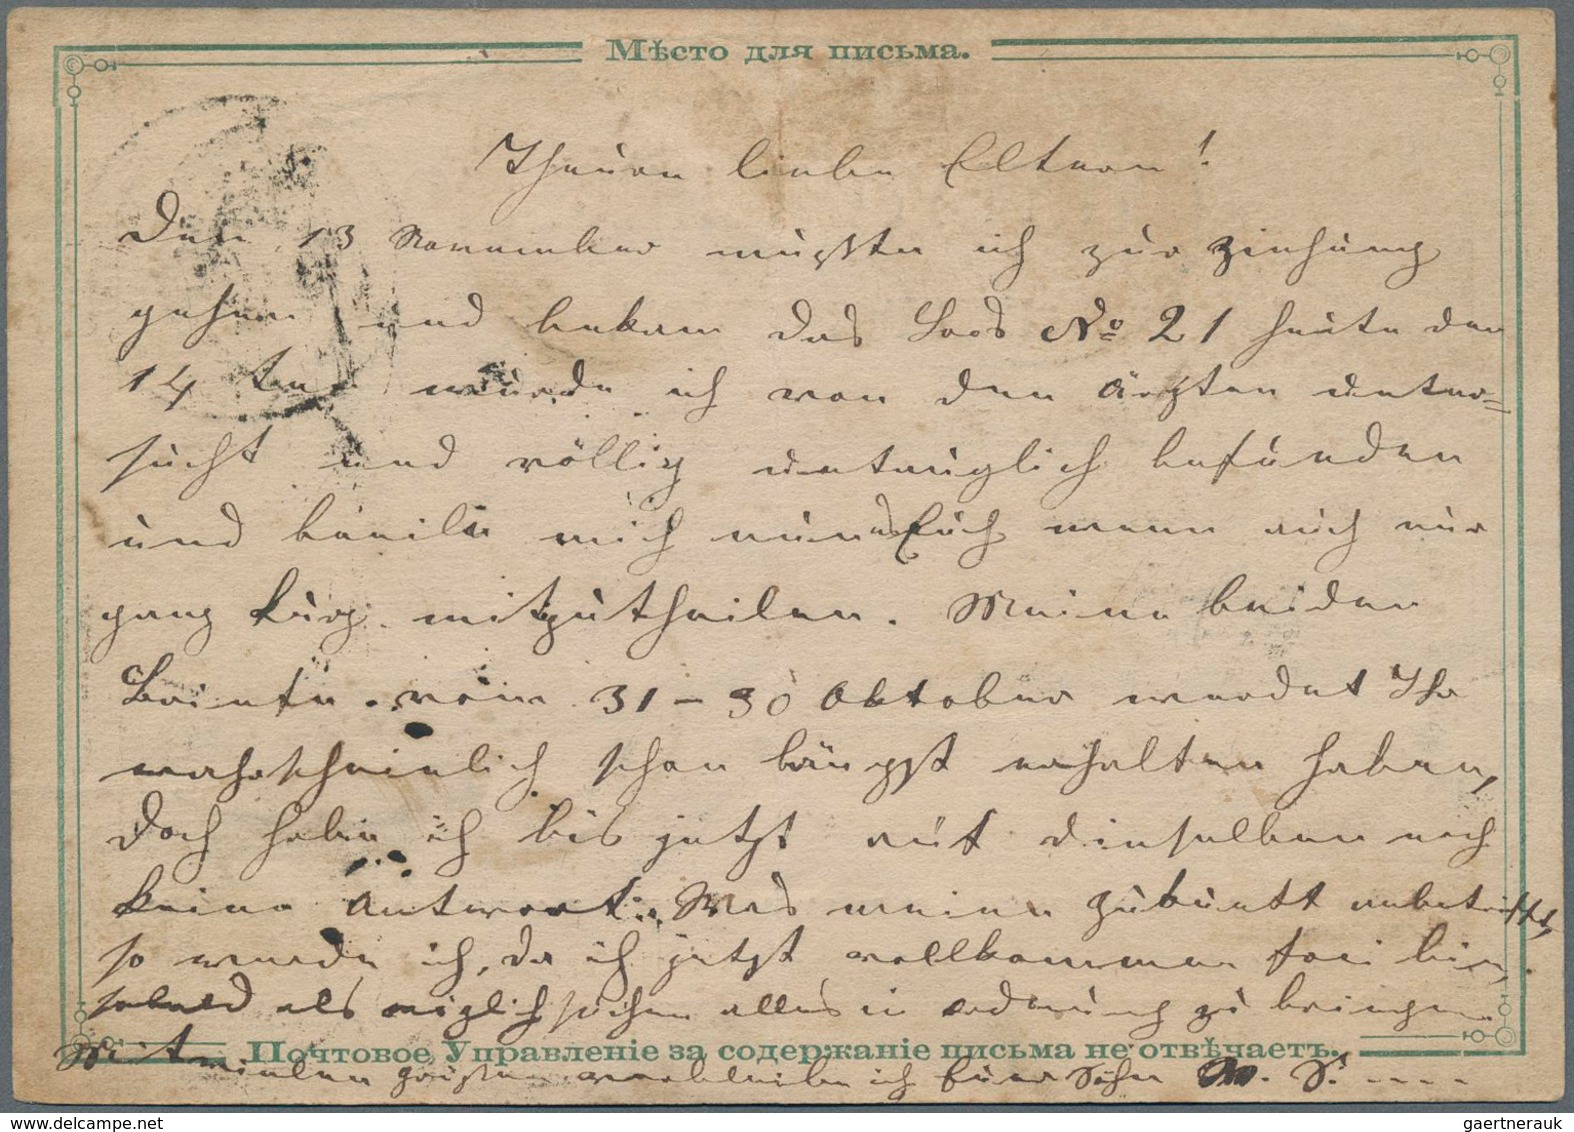 Мѣсто для письма.
Theure liebe Eltern!
Den 13 November mußte ich zur Ziehung
gehen und bekam das Loos No 21 heute den
14 ten wurde ich von den Ärzten unter=
sucht und völlig untauglich befunden
und beeile mich nun es Euch wenn auch nur
ganz kurz mitzutheilen. Meine beiden
Briefe vom 31 – 30 Oktober werdet Ihr
wahrscheinlich schon längst erhalten haben,
doch habe ich bis jetzt auf dieselben noch
keine Antwort. Was meine Zukunft anbetrifft,
so werde ich, da ich jetzt vollkommen frei bin,
sobald als möglich suchen alles in Ordnung zu bringen.
Почтовое Управленіе за содержаніе письма не отвѣчаетъ.
Mit vielen Grüßen verbleibe ich Euer Sohn M. S. ....
gaertnerauk